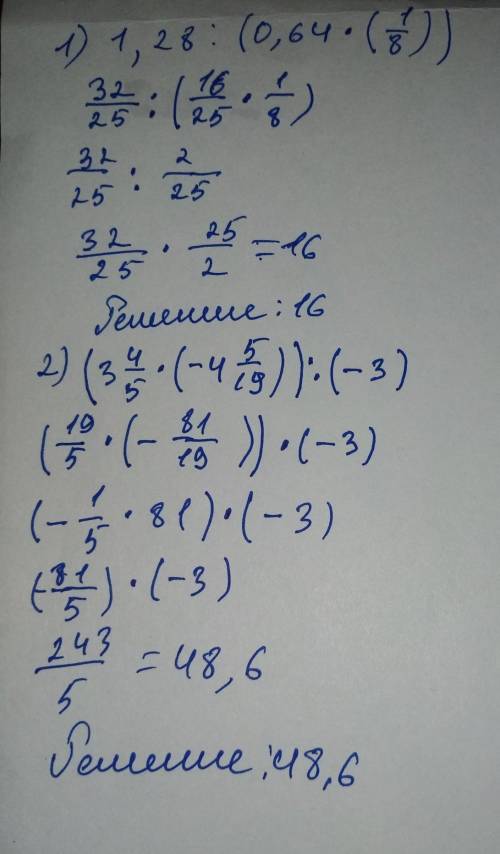 1) 1,28 : (0,64 · (1/8))
32/25 : (16/25 · 1/8)
32/25 : 2/25
32/25 · 25/2 = 16
Решение: 16
2) (3 4/5 · (-4 5/19)) : (-3)
(19/5 · (- 81/19)) · (-3)
(- 1/5 · 81) · (-3)
(-81/5) · (-3)
243/5 = 48,6
Решение: 48,6